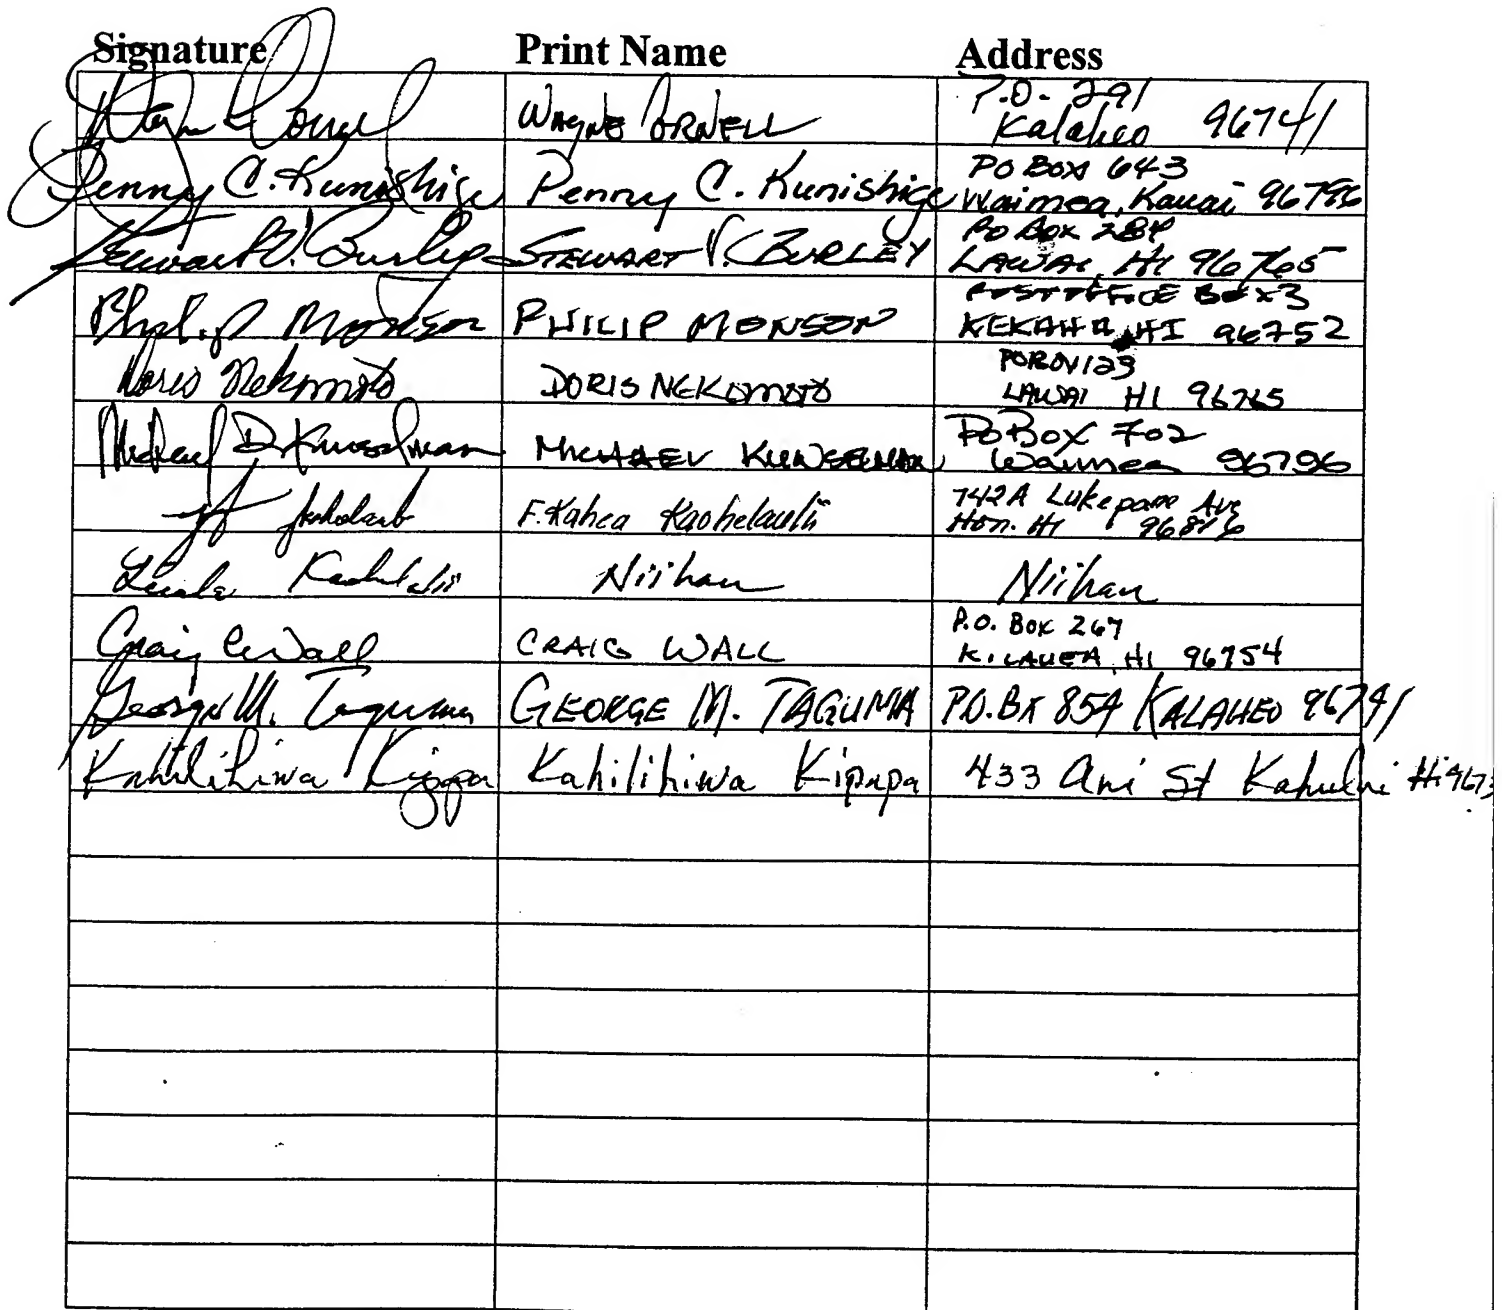 Signature Print Name Address
WAYNE P.O. 291
Kalaheo 96741
Penny C. Kunishige Penny C. Kunishige PO BOX 643
Waimea, Kauai 96796
Stewart V. Burley STEWART V. BURLEY PO Box 284
LAWAI, HI 96765
Philip Monson PHILIP MONSON POST OFFICE BOX 3
KEKAHA HI 96752
Doris Nekomoto DORIS NEKOMOTO
LAWAI HI 96765
Michael D. Kunselman MICHAEL KUNSELMAN PO BOX 702
Waimea 96796
F. Kahea Kaohelaulii 742A Lukepane Ave
Hon. HI 96816
Kaohelaulii Niihau Niihau
Craig Wall CRAIG WALL P.O. Box 267
KILAUEA, HI 96754
George M. Taguma GEORGE M. TAGUMA P.O. BX 854 KALAHEO 96741
Kahilihiwa Kipapa Kahilihiwa Kipapa 433 Ani St Kahului Hi 9673